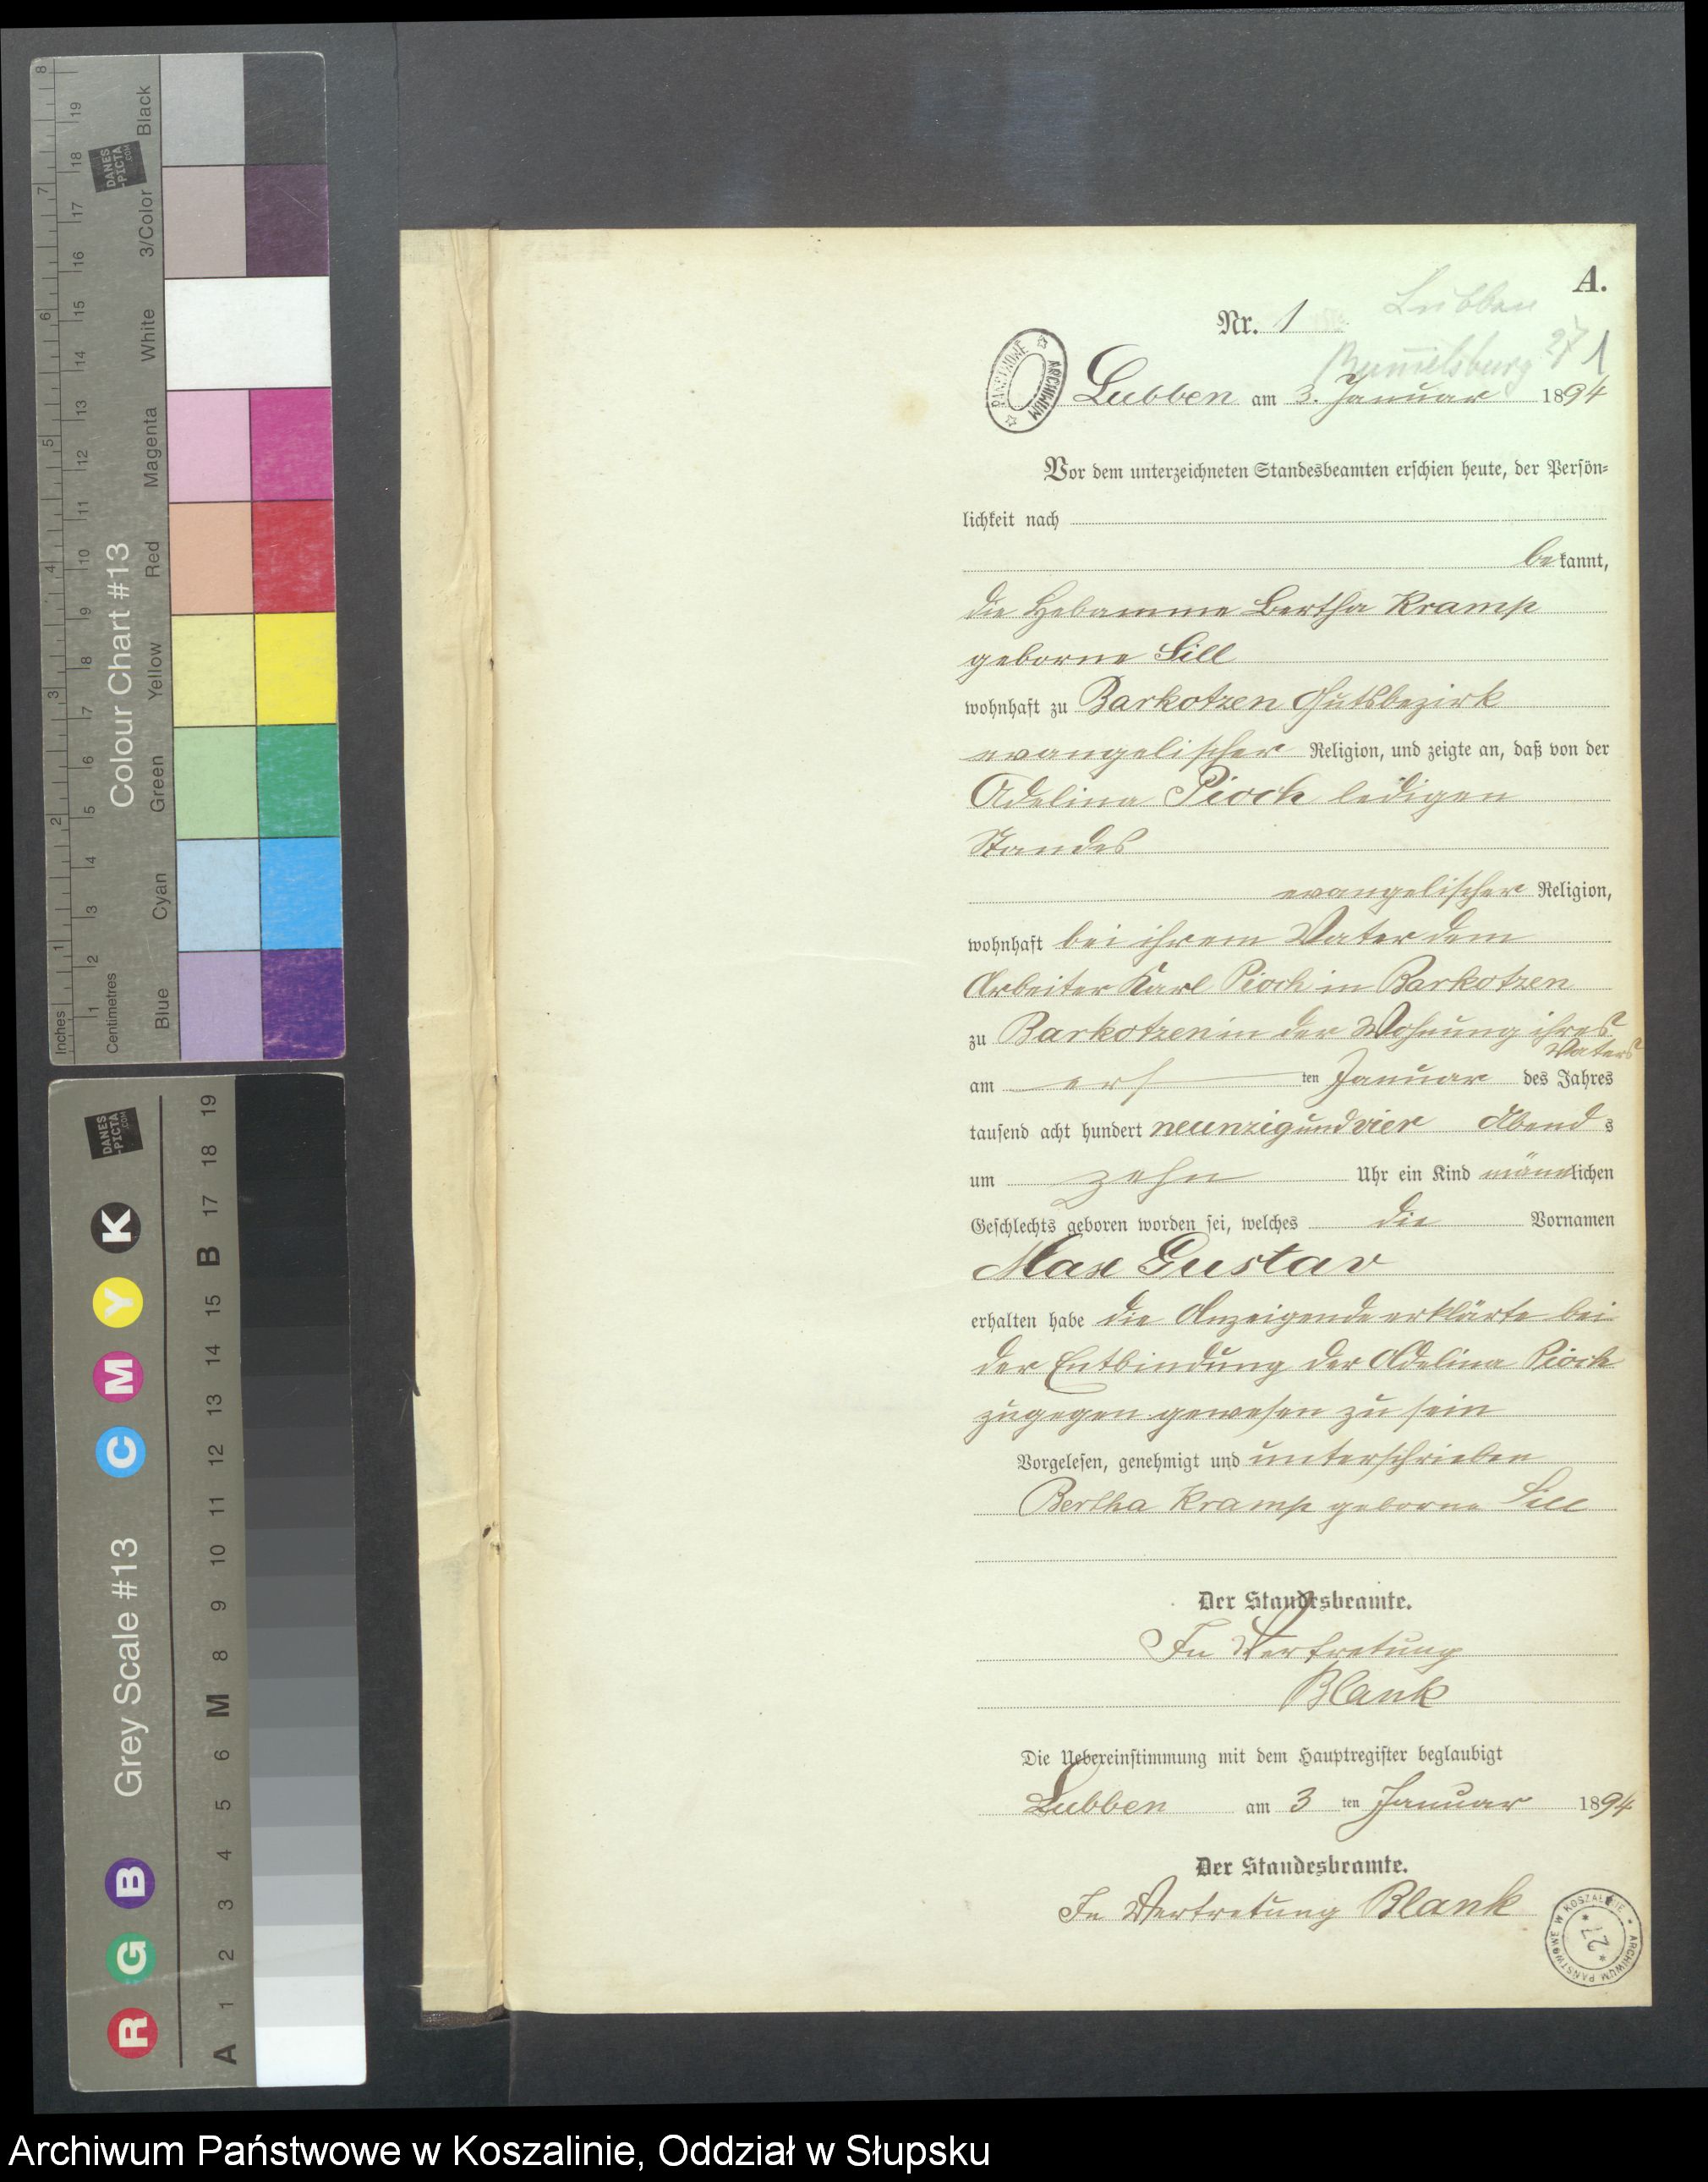 A.
Lubben
Nr. 1
Rummelsburg 27 1
Lubben am 3. Januar 1894
Vor dem unterzeichneten Standesbeamten erschien heute, der Persön-
lichkeit nach
bekannt,
die Hebamme Bertha Kramp
geborne Sill
wohnhaft zu Barkotzen Gutsbezirk
evangelischer Religion, und zeigte an, daß von der
Adeline Pioch ledigen
Standes
evangelischer Religion,
wohnhaft bei ihrem Vater dem
Arbeiter Karl Pioch in Barkotzen
zu Barkotzen in der Wohnung ihres
Vaters
am ers ten Januar des Jahres
tausend acht hundert neunzig und vier Abend s
um zehn Uhr ein Kind männlichen
Geschlechts geboren worden sei, welches die Vornamen
Max Gustav
erhalten habe die Anzeigende erklärte bei
der Entbindung der Adeline Pioch
zugegen gewesen zu sein
Vorgelesen, genehmigt und unterschrieben
Bertha Kramp geborne Sill
Der Standesbeamte.
In Vertretung
Blank
Die Uebereinstimmung mit dem Hauptregister beglaubigt
Lubben am 3 ten Januar 1894
Der Standesbeamte.
In Vertretung Blank
ARCHIWUM PAŃSTWOWE
ARCHIWUM PAŃSTWOWE W KOSZALINIE
27
Colour Chart #13
Inches 1 2 3 4 5 6 7 8
Centimetres 1 2 3 4 5 6 7 8 9 10 11 12 13 14 15 16 17 18 19
Blue Cyan Green Yellow Red Magenta White 3/Color Black
DANES
-PICTA
.COM
Grey Scale #13
R G B C M Y K
DANES
-PICTA
.COM
A 1 2 3 4 5 6 M 8 9 10 11 12 13 14 15 B 17 18 19
Archiwum Państwowe w Koszalinie, Oddział w Słupsku